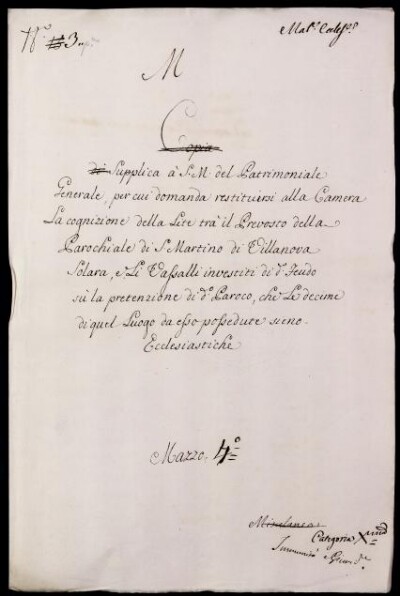 N.º 3
Mat.e Eccles.e
M
Copia
di Supplica à S. M. del Patrimoniale
Generale, per cui domanda restituirsi alla Camera
La cognizione della Lite trà il Prevosto della
Parochiale di S.n Martino di Villanova
Solara, e Li Vassalli investiti di d.o feudo
sù la pretenzione di d.o Paroco, che Le decime
di quel Luogo da esso possedute sieno
Ecclesiastiche
Mazzo, 4.º
Miscelanea
Categoria